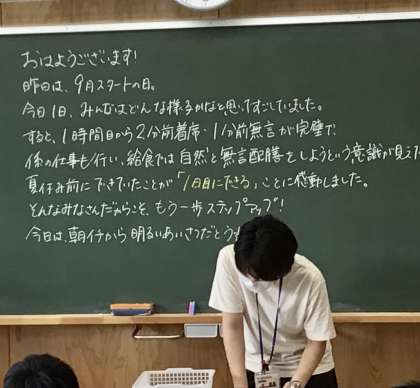 おはようございます!
昨日は、9月スタートの日。
今日1日、みんなはどんな様子かなと思ってすごしていました。
すると、1時間目から2分前着席・1分前無言が完璧で、
係の仕事も行い、給食では自然と無言配膳をしようという意識が見えた
夏休み前にできていたことが「1日目にできる」ことに感動しました。
そんなみなさんだからこそ、もう一歩ステップアップ!
今日は、朝イチから明るいあいさつだとう